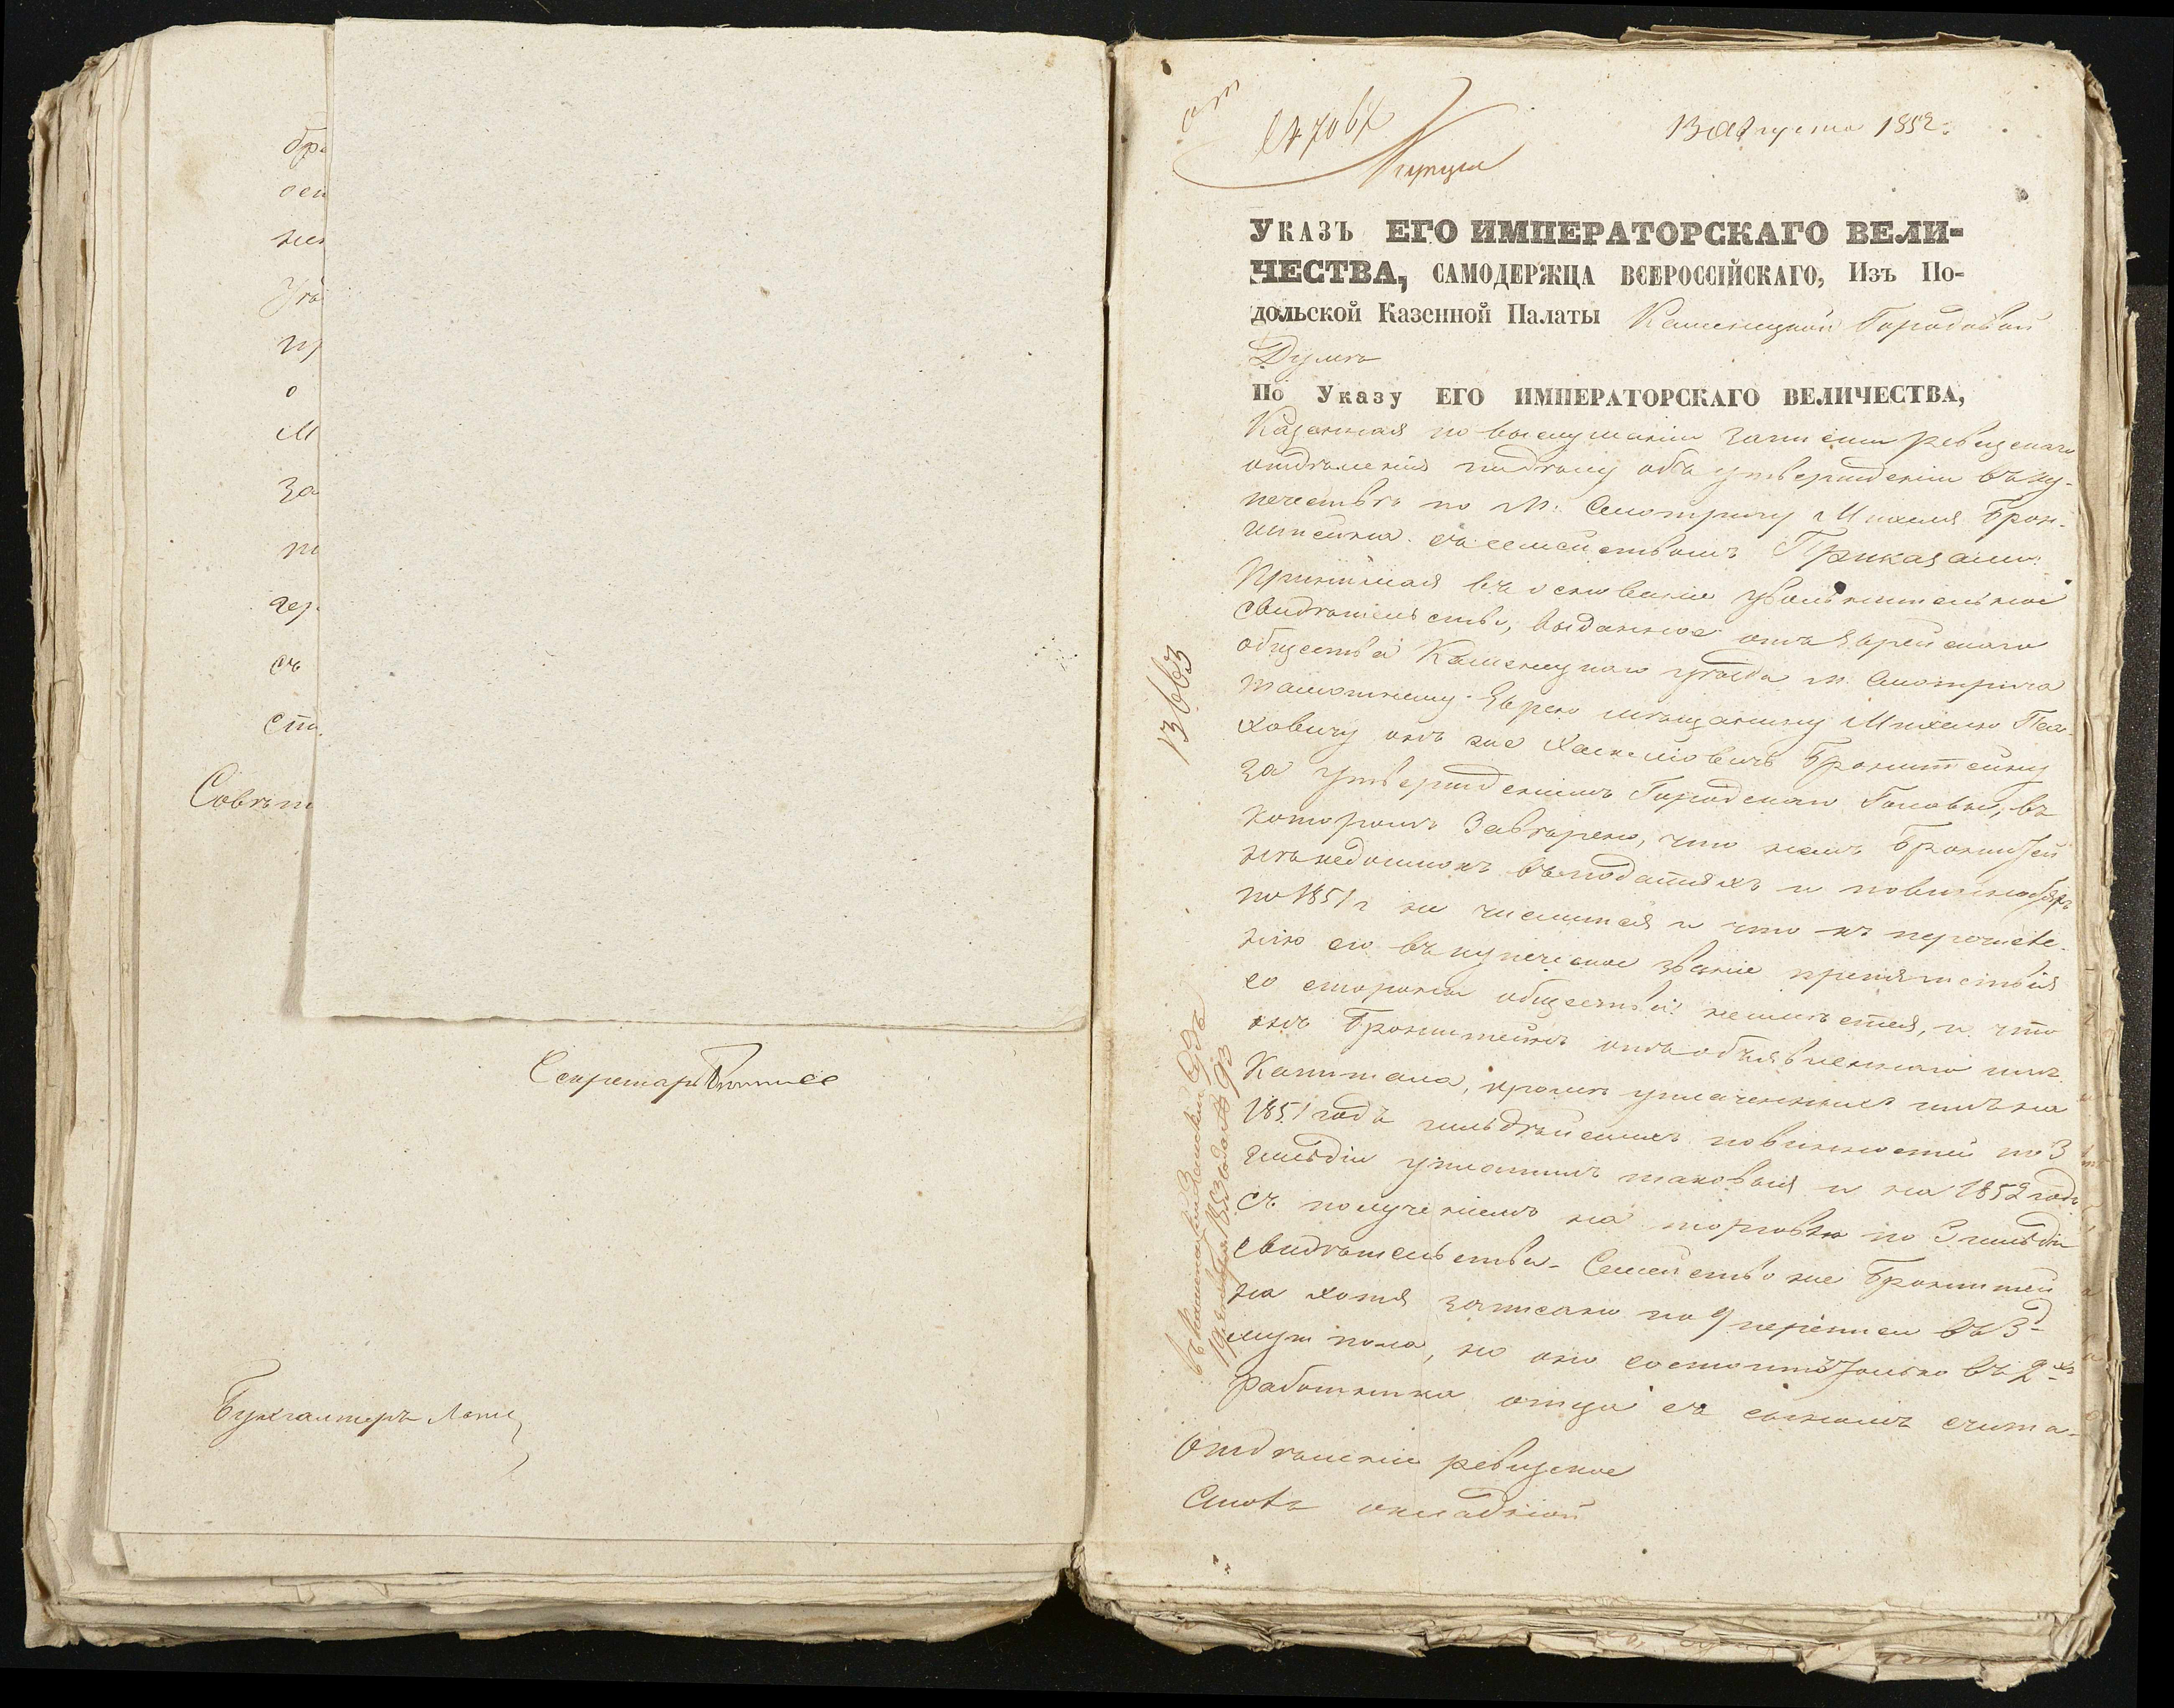 бр
осн
о
М
За
съ
Совѣтн
Секретарь
Бухгалтеръ
№ 7067
13 Августа 1852.
Указъ ЕГО ИМПЕРАТОРСКАГО ВЕЛИ-
ЧЕСТВА, САМОДЕРЖЦА ВСЕРОССІЙСКАГО, Изъ По-
дольской Казенной Палаты Каменецкой Городовой
Думѣ
По Указу ЕГО ИМПЕРАТОРСКАГО ВЕЛИЧЕСТВА,
Казенная по выслушаніи записки ревизскаго
отдѣленія объ утвержденіи въ ку-
печествѣ по м: Смотричу Михеля Брон-
штейна съ семействомъ Приказали:
Принимая въ основаніе увольнительное
свидѣтельство, выданное отъ Еврейскаго
общества Каменецкаго уѣзда м. Смотрича
тамошнему Еврею мѣщанину Михелю
ховичу онъ же Хаскелювичъ Бронштейну
за утвержденіемъ Городскаго Головы, въ
которомъ завѣрено, что на немъ Бронштей
нѣ недоимокъ въ податяхъ и повинностяхъ
по 1851 г не числится и что къ перечисле-
нію его въ купеческое званіе препятствія
со стороны общества неимѣется, и что
онъ Бронштейнъ отъ объявленнаго имъ
Капитала, кромѣ уплаченныхъ имъ на
1851 годъ гильдѣйскихъ повинностей по 3
гильдіи уплатилъ таковыя и на 1852 годъ
съ полученіемъ на торговлю по 3 гильдіи
свидѣтельства. Семейство же Бронштей
на хотя записано по 9 переписи въ 3
муж пола, но оно состоитъ только въ 2хъ
работника отца съ сыномъ счита-
Отдѣленіе ревизское
Столъ окладной
13663
въ Каменецкій Земскій Судъ
19 1853 года № 93